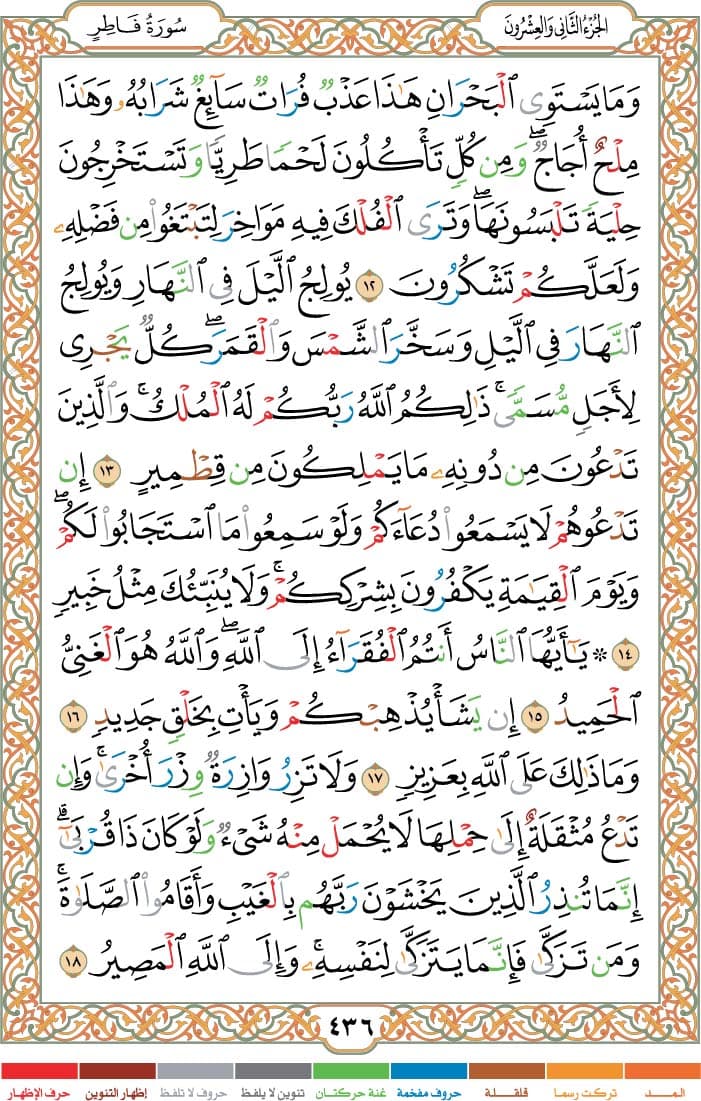 الجُزْءُ الثَّانِي وَالعِشْرُونَ
سُورَةُ فَاطِرٍ
وَمَا يَسْتَوِى ٱلْبَحْرَانِ هَٰذَا عَذْبٌ فُرَاتٌ سَآئِغٌ شَرَابُهُۥ وَهَٰذَا
مِلْحٌ أُجَاجٌ ۖ وَمِن كُلٍّ تَأْكُلُونَ لَحْمًا طَرِيًّا وَتَسْتَخْرِجُونَ
حِلْيَةً تَلْبَسُونَهَا ۖ وَتَرَى ٱلْفُلْكَ فِيهِ مَوَاخِرَ لِتَبْتَغُوا۟ مِن فَضْلِهِۦ
وَلَعَلَّكُمْ تَشْكُرُونَ ١٢ يُولِجُ ٱلَّيْلَ فِى ٱلنَّهَارِ وَيُولِجُ
ٱلنَّهَارَ فِى ٱلَّيْلِ وَسَخَّرَ ٱلشَّمْسَ وَٱلْقَمَرَ ۖ كُلٌّ يَجْرِى
لِأَجَلٍ مُّسَمًّى ۚ ذَٰلِكُمُ ٱللَّهُ رَبُّكُمْ لَهُ ٱلْمُلْكُ ۚ وَٱلَّذِينَ
تَدْعُونَ مِن دُونِهِۦ مَا يَمْلِكُونَ مِن قِطْمِيرٍ ١٣ إِن
تَدْعُوهُمْ لَا يَسْمَعُوا۟ دُعَآءَكُمْ وَلَوْ سَمِعُوا۟ مَا ٱسْتَجَابُوا۟ لَكُمْ ۖ
وَيَوْمَ ٱلْقِيَٰمَةِ يَكْفُرُونَ بِشِرْكِكُمْ ۚ وَلَا يُنَبِّئُكَ مِثْلُ خَبِيرٍ
١٤ * يَٰٓأَيُّهَا ٱلنَّاسُ أَنتُمُ ٱلْفُقَرَآءُ إِلَى ٱللَّهِ ۖ وَٱللَّهُ هُوَ ٱلْغَنِىُّ
ٱلْحَمِيدُ ١٥ إِن يَشَأْ يُذْهِبْكُمْ وَيَأْتِ بِخَلْقٍ جَدِيدٍ ١٦
وَمَا ذَٰلِكَ عَلَى ٱللَّهِ بِعَزِيزٍ ١٧ وَلَا تَزِرُ وَازِرَةٌ وِزْرَ أُخْرَىٰ ۚ وَإِن
تَدْعُ مُثْقَلَةٌ إِلَىٰ حِمْلِهَا لَا يُحْمَلْ مِنْهُ شَىْءٌ وَلَوْ كَانَ ذَا قُرْبَىٰٓ ۗ
إِنَّمَا تُنذِرُ ٱلَّذِينَ يَخْشَوْنَ رَبَّهُم بِٱلْغَيْبِ وَأَقَامُوا۟ ٱلصَّلَوٰةَ ۚ
وَمَن تَزَكَّىٰ فَإِنَّمَا يَتَزَكَّىٰ لِنَفْسِهِۦ ۚ وَإِلَى ٱللَّهِ ٱلْمَصِيرُ ١٨
٤٣٦
المــــد تركت رسما قلقـــلة حروف مفخمة غنة حركتان تنوين لا يلفظ حروف لا تلفظ إظهار التنوين حرف الإظهار